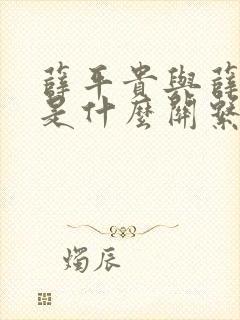 薛平貴與薛
是什麼關繫
燭辰